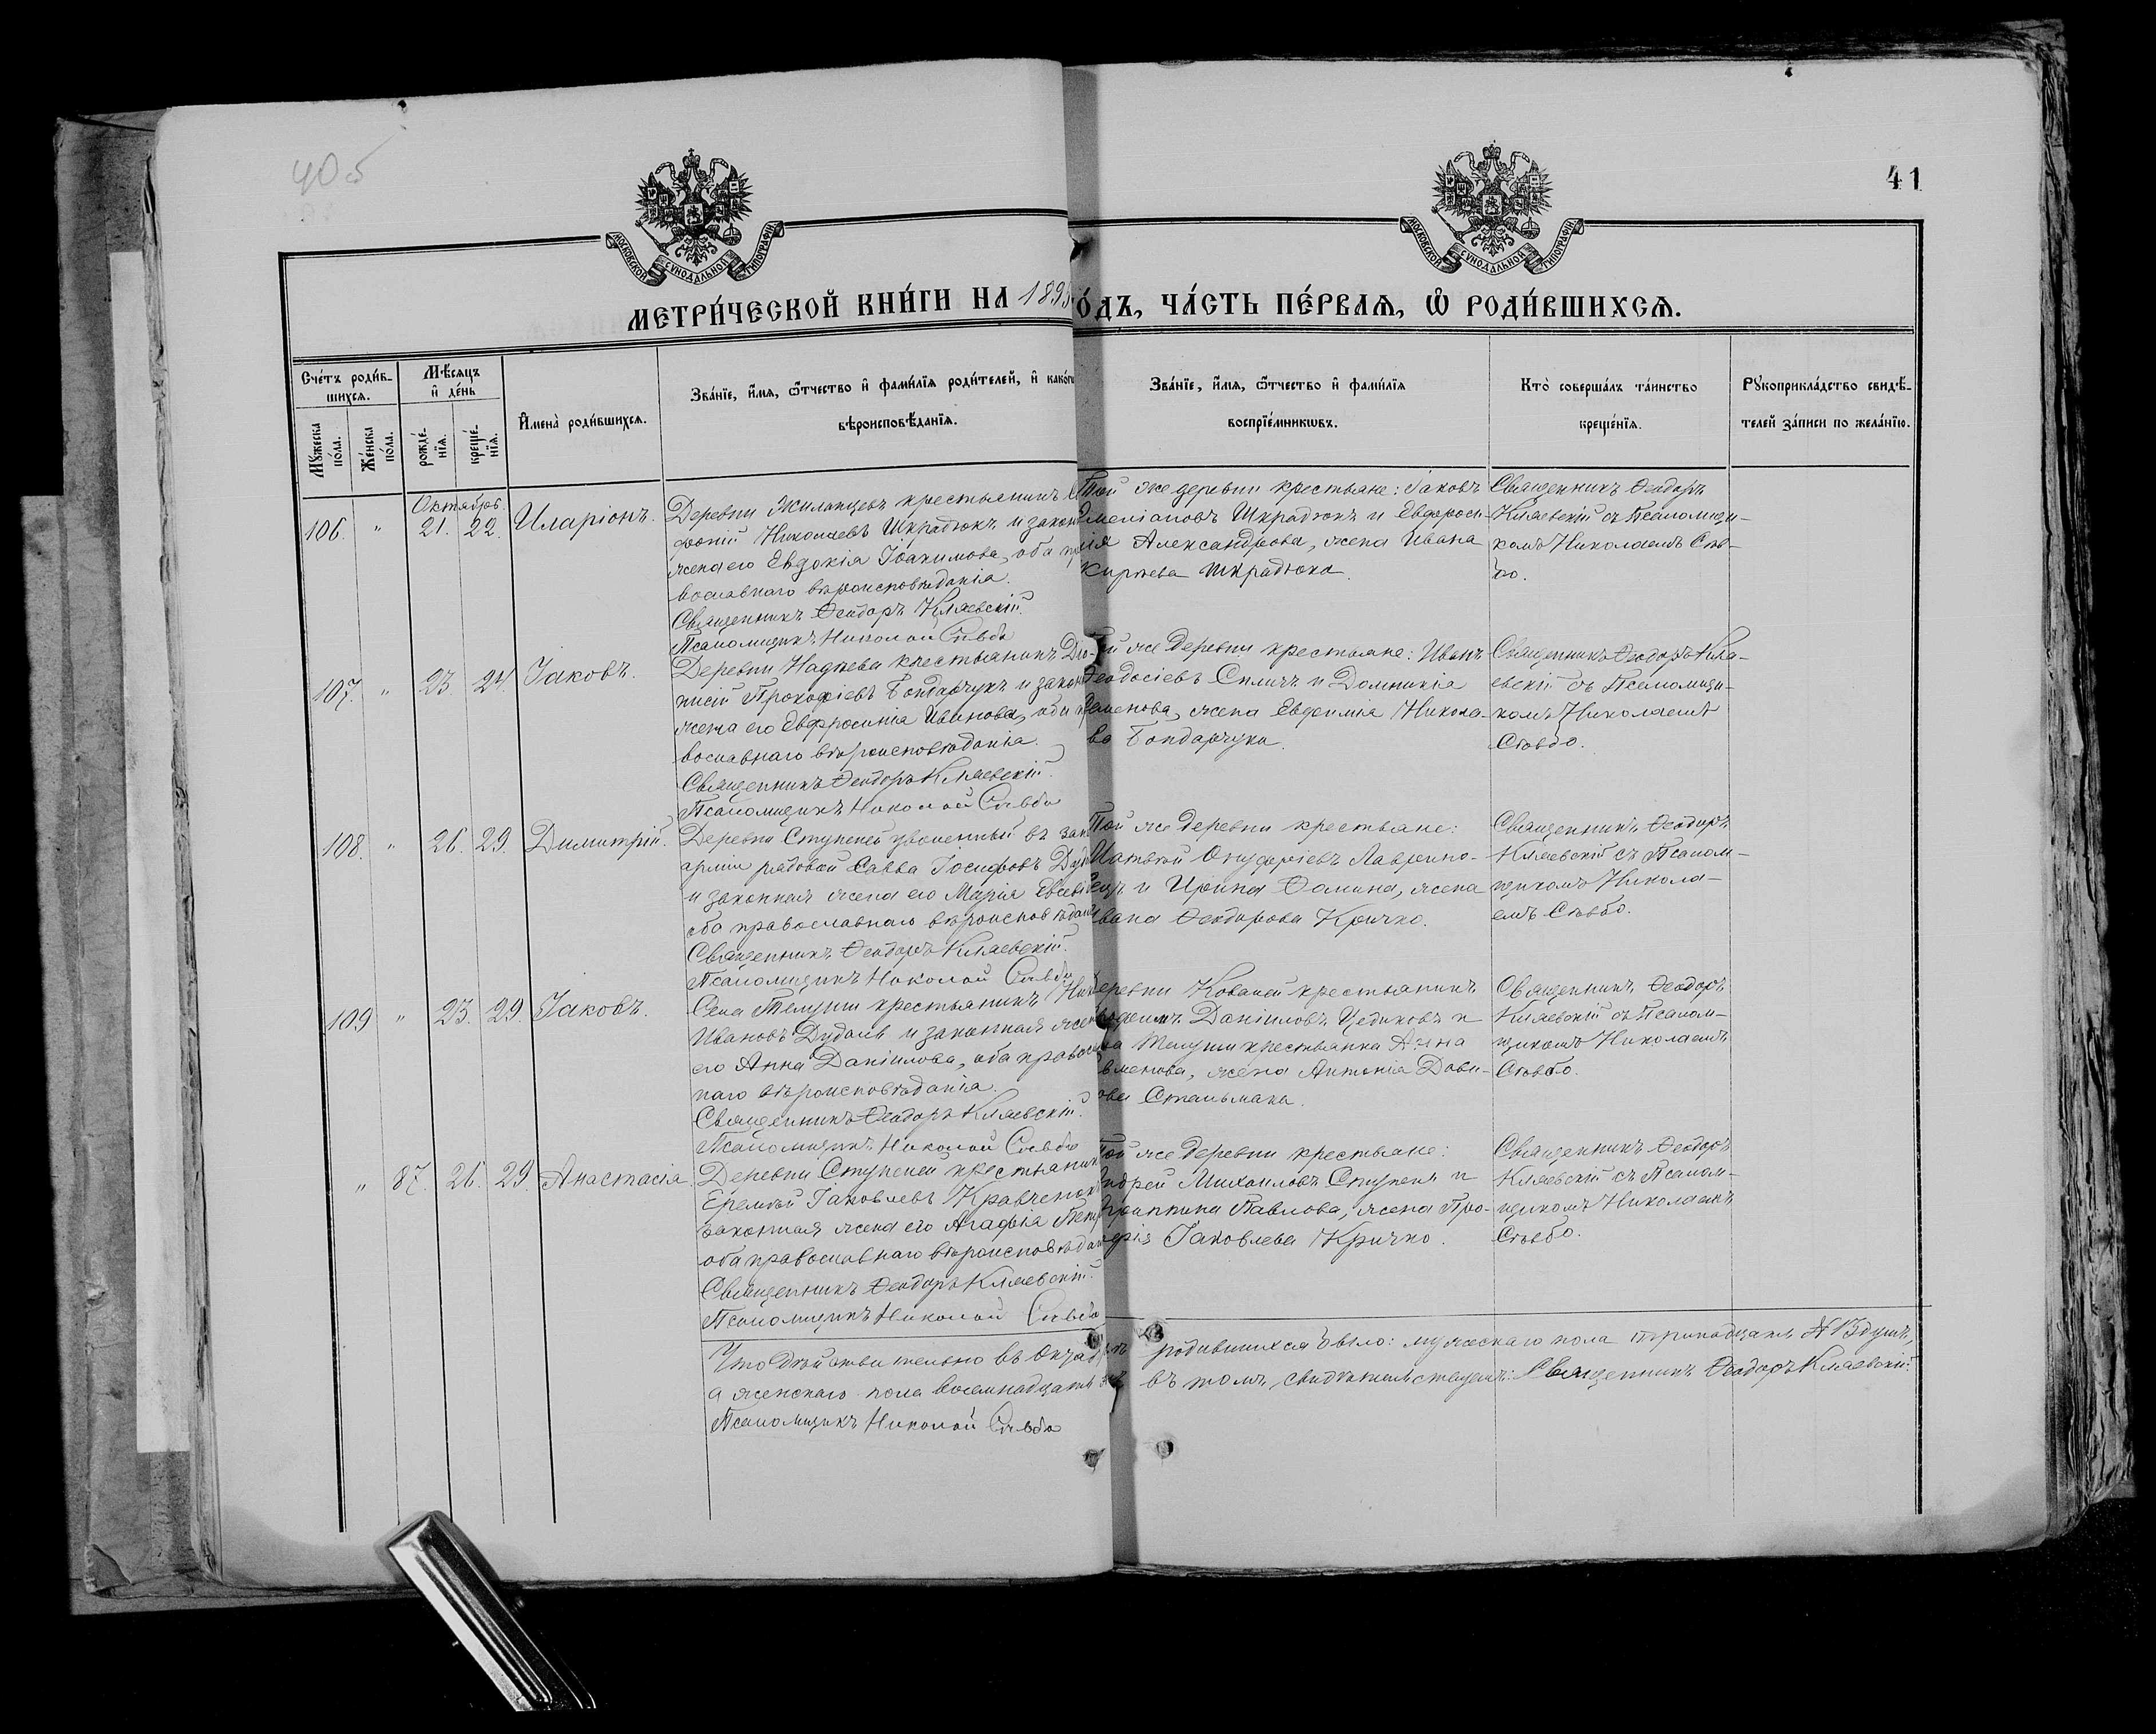 40 об
41
МОСКОВСКОЙ СѴНОДАЛЬНОЙ ТИПОГРАФІИ
МОСКОВСКОЙ СѴНОДАЛЬНОЙ ТИПОГРАФІИ
МЕТРИ́ЧЕСКОЙ КНИ́ГИ НА 1895
О́ДЪ, ЧА́СТЬ ПЕ́РВАѦ, Ѡ҆ РОДИ́ВШИХСѦ.
Сче́тъ роди́в-
шихсѧ.
Мꙋ́жеска по́ла.
Же́нска по́ла.
Мѣ́сѧцъ и҆ де́нь
рожде́-нїѧ.
креще́-нїѧ.
И҆мена̀ роди́вшихсѧ.
Зва́нїе, и҆́мѧ, ѻ҆́тчество и҆ фами́лїѧ роди́телей, и҆ како́гѡ
вѣроисповѣ́данїѧ.
Зва́нїе, и҆́мѧ, ѻ҆́тчество и҆ фами́лїѧ
воспрїе́мникѡвъ.
Кто̀ соверша́лъ та́инство
креще́нїѧ.
Рꙋкоприкла́дство свидѣ́-
телей за́писи по жела́нїю.
Октябрь
106. " 21. 22. Иларіонъ.
Деревни Жилинцевъ крестьянинъ
Николаевъ Шкрадюкъ и закон
жена его Евдокія Іоакимова, оба пра
вославнаго вѣроисповѣданія.
Священникъ Ѳеодоръ Кляевскій.
Псаломщикъ Николай Стьбо
Той же деревни крестьяне: Іаковъ
Емеліановъ Шкрадюкъ и Евфроси-
нія Александрова, жена Ивана
Кирѣева Шкрадюка.
Священникъ Ѳеодоръ
Кляевскій съ Псаломщи-
комъ Николаемъ Сть-
бо.
107. " 23. 24. Іаковъ.
Деревни Надѣева крестьянинъ Діо-
нисій Прокофіевъ Бондарчукъ и закон
жена его Евфросинія Иванова, оба пра
вославнаго вѣроисповѣданія.
Священникъ Ѳеодоръ Кляевскій.
Псаломщикъ Николай Стьбо
Той же деревни крестьяне: Иванъ
Ѳеодосіевъ Силичъ и Домникія
Семенова, жена Евфимія Никола-
ва Бондарчука.
Священникъ Ѳеодоръ Кля-
евскій съ Псаломщи-
комъ Николаемъ
Стьбо.
108. " 26. 29. Димитрій.
Деревни Ступеней уволенный въ зап
арміи рядовой Савва Іосифовъ Дуд
и законная жена его Марія Евсевіе
оба православнаго вѣроисповѣданія
Священникъ Ѳеодоръ Кляевскій.
Псаломщикъ Николай Стьбо
Той же деревни крестьяне:
Матвѣй Онуфріевъ Лаврино-
вецъ и Ирина Ѳомина, жена
вана Ѳеодорова Кричко.
Священникъ Ѳеодоръ
Кляевскій съ Псалом-
щикомъ Никола-
емъ Стьбо.
109 " 23. 29. Іаковъ.
Села Телуши крестьянинъ Ник
Ивановъ Дудаль и законная жен
его Анна Даніилова, оба правосл
наго вѣроисповѣданія.
Священникъ Ѳеодоръ Кляевскій.
Псаломщикъ Николай Стьбо
еревни Ковалей крестьянинъ
Даніиловъ Цедиковъ и
ла Телуши крестьянка Анна
вменова, жена Антонія Дави-
ова Стельмаха.
Священникъ Ѳеодоръ
Кляевскій съ Псалом-
щикомъ Николаемъ
Стьбо.
" 87. 26. 29. Анастасія.
Деревни Ступеней крестьянинъ
Еремѣй Іаковлевъ Кравченокъ
законная жена его Агафія Петр
оба православнаго вѣроисповѣдан
Священникъ Ѳеодоръ Кляевскій.
Псаломщикъ Николай Стьбо
Той же деревни крестьяне:
Андрей Михаиловъ Ступень и
Агриппина Павлова, жена Про-
кофія Іаковлева Кричко.
Священникъ Ѳеодоръ
Кляевскій съ Псалом-
щикомъ Николаемъ
Стьбо.
Что дѣйствительно въ Октябрѣ родившихся было: мужескаго пола тринадцать № 13 душъ,
а женскаго пола восемнадцать въ томъ свидѣтельствуемъ: Священникъ Ѳеодоръ Кляевскій.
Псаломщикъ Николай Стьбо